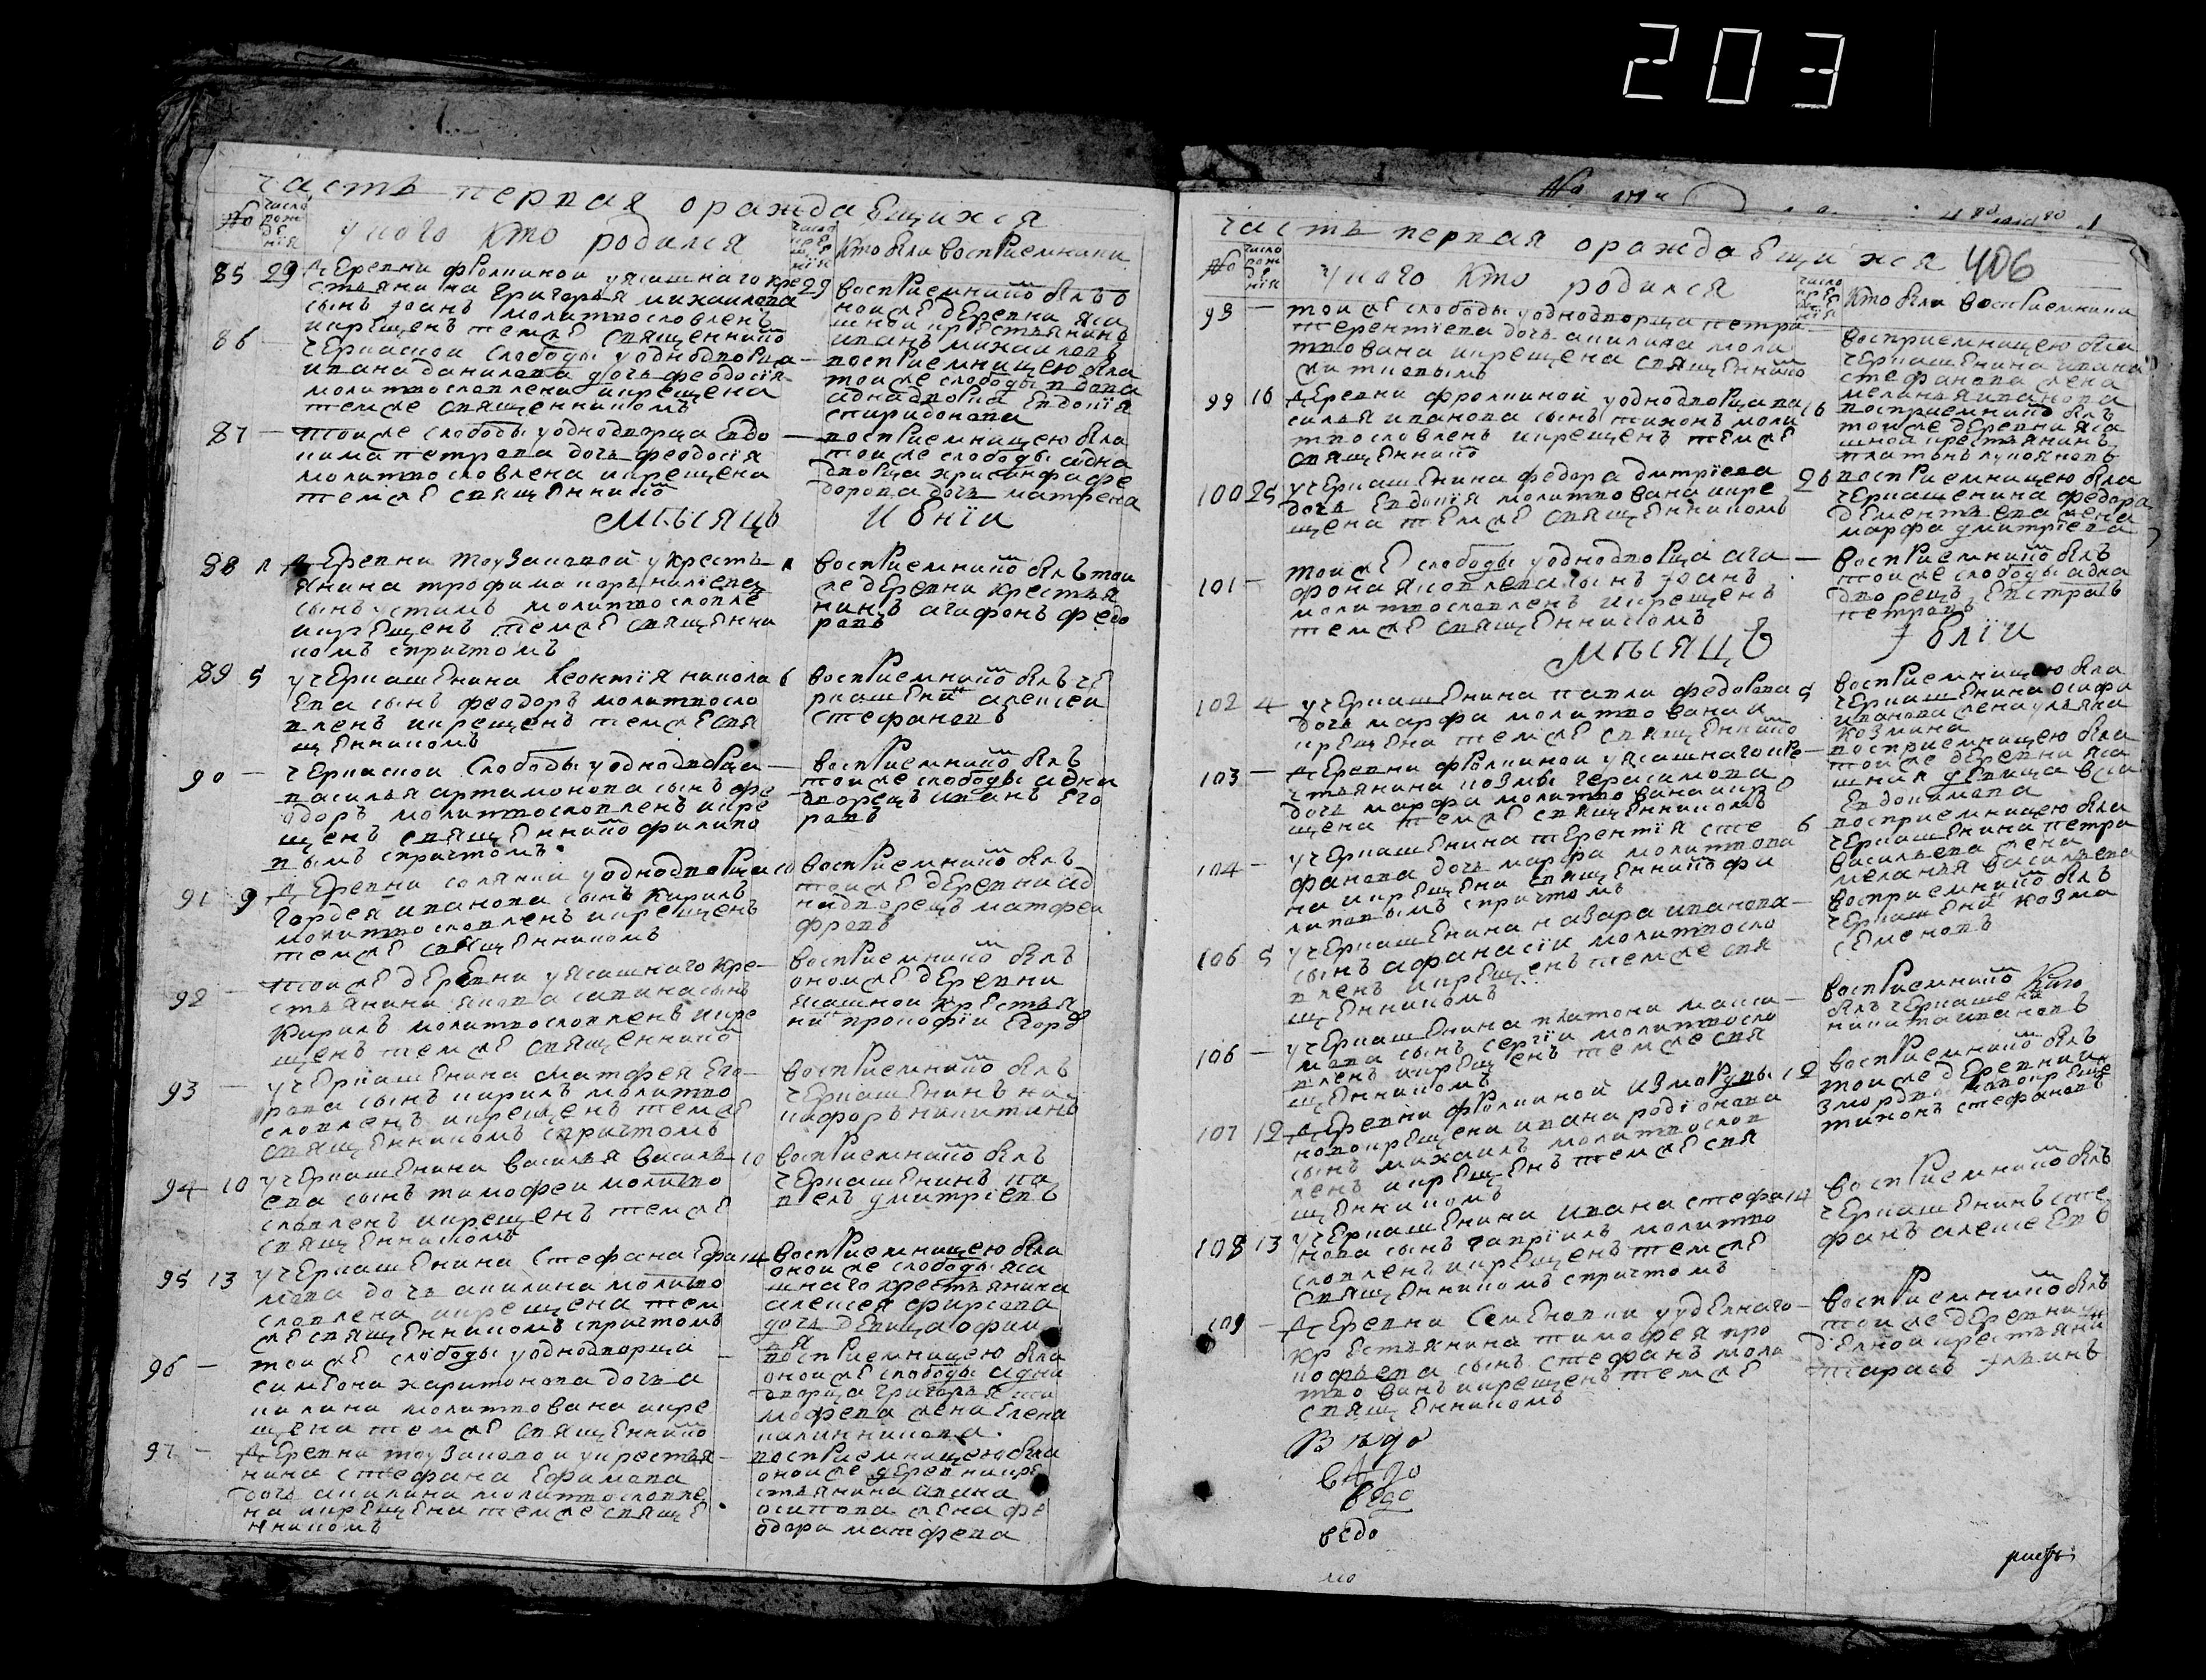 203
часть первая ораждаБщихся
№
число рож де нїя
у кого кто родился
число кре ще нїя
кто были восприемники
85 29 деревни фролкиной уясашнаго кре 29
стьянина григорья михаилова
сынъ іоанъ молитвословленъ
икрещенъ темже священнико
восприемнико былъ о
ноиже деревни яса
шнои крестьянинъ
иванъ михаиловъ
86 — черкаскои слободы уоднодворца —
ивана данилова дочь феодосїя
молитвословлена икрещена
темже священникомъ
восприемницею была
тоиже слободы вдова
аднадворка евдокїя
спиридонова
87 — тоиже слободы уоднодворца евдо —
кима петрова дочь феодосїя
молитвословлена икрещена
темже священнико
восприемницею была
тоиже слободы адна
дворца хрисанфа фе
дорова дочь матрена
мѣсяцъ июнїи
88 деревни тоузаковой укресть
янина трофима корнилїева
сынъ устинъ молитвословле
икрещенъ темже священни
комъ спричтомъ
восприемнико былъ тои
же деревни крестья
нинъ агафонъ федо
ровъ
89 5 учеркашенина леонтїя никола 6
ева сынъ феодоръ молитвосло
вленъ икрещенъ темже свя
щенникомъ
восприемнико былъ че
ркашени алексеи
стефановъ
90 — черкаскои слободы уоднодворца —
василья артамонова сынъ фе
одоръ молитвословленъ икре
щенъ священнико филипо
вымъ спричтомъ
восприемнико былъ
тоиже слободы одна
дворецъ иванъ его
ровъ
91 9 деревни солянки уоднодворца 10
гордея иванова сынъ кирилъ
молитвословленъ икрещенъ
темже священникомъ
восприемнико былъ
тоиже деревни ад
надворецъ матфеи
фровъ
92 — тоиже деревни уясашнаго кре—
стьянина якова савина сынъ
кирилъ молитвословленъ икре
щенъ темже священнико
восприемнико былъ
оноиже деревни
ясашнои крестья
ни прокофїи егоро
93 — учеркашенина матфея его—
рова сынъ кирилъ молитво
словленъ икрещенъ темже
священникомъ спричтомъ
восприемнико былъ
черкашенинъ ни
кифоръ никитинъ
94 10 учеркашенина василья василь 10
ева сынъ тимофеи молитво
словленъ икрещенъ темже
священникомъ
восприемнико былъ
черкашенинъ па
велъ дмитрїевъ
95 13 учеркашенина стефана ефи 14
мова дочь акилина молитво
словлена икрещена тем
же священникомъ спричтомъ
восприемницею была
оноиже слободы яса
шнаго крестьянина
алексея фирсова
дочь девица офим
я
96 — тоиже слободы уоднодворца —
симеона харитонова дочь а
килина молитвована икре
щена темже священнико
восприемницею была
оноиже слободы адна
дворца григорья ти
мофева жена елена
калинникова.
97 — деревни тоузаковои укрестья —
нина стефана ефимова
дочь акилина молитвословле
на икрещена темже свяще
нникомъ
восприемницею была
оноиже деревни кре
стьянина ивана
осипова жена фе
одора матфева
часть первая ораждаБщихся 406
№
число рож де нїя
у кого кто родился
число кре ще нїя
кто были восприемники
98 — тоиже слободы уоднодворца петра —
терентїева дочь акилина моли
твована икрещена священнико
никтиевымъ
восприемницею была
черкашенина ивана
стефанова жена
меланья иванова
99 16 деревни фролкиной уоднодворца ва 16
силья иванова сынъ тихонъ моли
твословленъ икрещенъ темже
священнико
восприемнико былъ
тоиже деревни яса
шнои крестьянинъ
платонъ лукояновъ
100 25 учеркашенина федора дмитрїева 26
дочь евдокїя молитвована икре
щена темже священникомъ
восприемницею была
черкашенина федора
дементьева жена
марфа дмитрїева
101 — тоиже слободы уоднодворца ага —
фона яковлева сынъ іоанъ
молитвословленъ икрещенъ
темже священникомъ
восприемнико былъ
тоиже слободы адна
дворецъ евстратъ
петровъ
мѣсяцъ іюлїи
102 4 учеркашенина павла федорова 5
дочь марфа молитвована и
крещена темже священнико
восприемницею была
черкашенина осифа
иванова жена ульяна
козмина
103 — деревни фролкиной уясашнаго кре—
стьянина козмы герасимова
дочь марфа молитвована икре
щена темже священникомъ
восприемницею была
тоиже деревни яса
шная девица васи
евдокимова
104 — учеркашенина терентїя сте 6
фанова дочь марфа молитвова
на икрещена священнико фи
липовымъ спричтомъ
восприемницею была
черкашенина петра
васильева жена
меланья васильева
106 5 учеркашенина назара иванова—
сынъ афанасїи молитвосло
вленъ икрещенъ темже свя
щенникомъ
восприемнико былъ
черкашени козма
семеновъ
106 — учеркашенина платона макси—
мова сынъ сергїи молитвосло
вленъ икрещенъ темже свя
щенникомъ
восприемнико
былъ черкашени
никита ивановъ
107 12 деревни фролкиной измордвы 12
новокрещена ивана родїонова
сынъ михаилъ молитвослов
ленъ икрещенъ темже свя
щенникомъ
восприемнико былъ
тоиже деревни и
змордвы новокреще
тихонъ стефановъ
108 13 учеркашенина ивана стефа 14
нова сынъ гаврїилъ молитво
словленъ икрещенъ темже
священникомъ спричтомъ
восприемнико былъ
черкашенинъ сте
фанъ алексеевъ
109 — деревни семеновки уудельнаго —
крестьянина тимофея про
кофьева сынъ стефанъ моли
твованъ икрещенъ темже
священникомъ
восприемнико былъ
тоиже деревни у
делнои крестьяни
тарасъ ильинъ